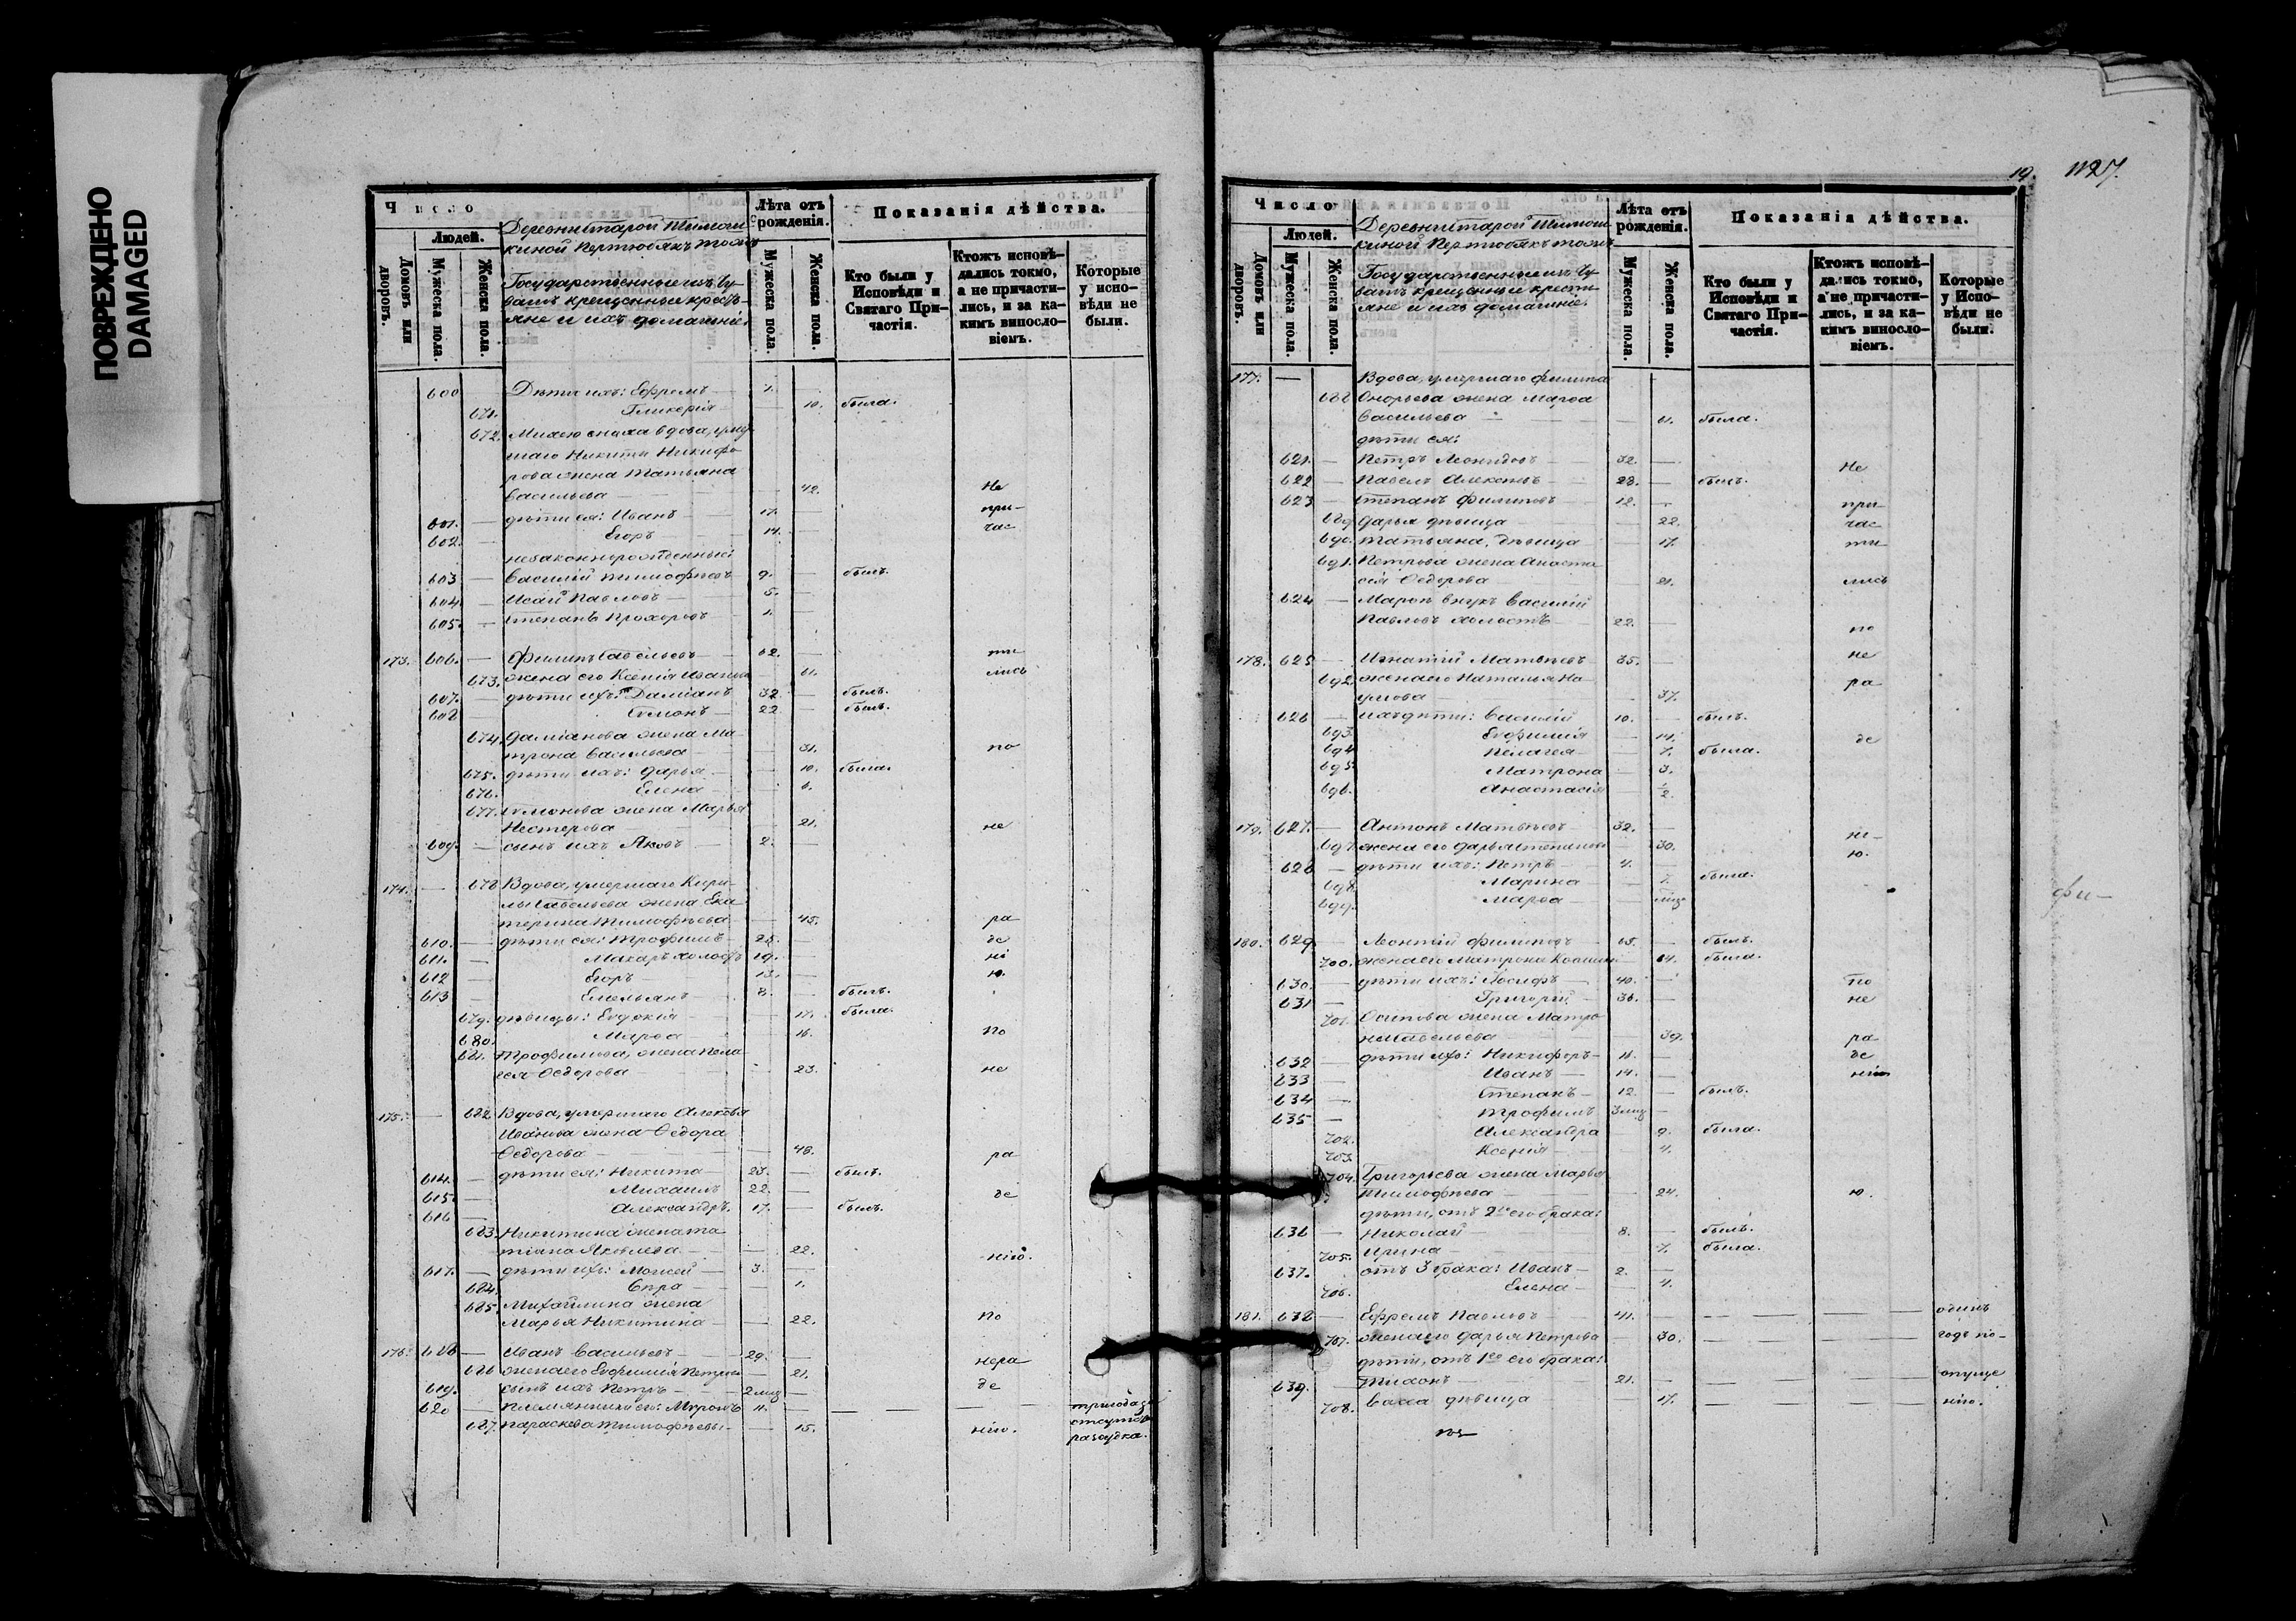 ПОВРЕЖДЕНО
DAMAGED
Число
Людей.
Домовъ или дворовъ.
Мужеска пола.
Женска пола.
Деревни Старой Тимош
киной Пертюбякъ тожъ
Государственные изъ Чу-
вашъ крещенные кресть-
яне и ихъ домашніе.
Лѣта отъ рожденія.
Мужеска пола.
Женска пола.
Показанія дѣйства.
Кто были у Исповѣди и Святаго При-частія.
Ктожъ исповѣ-дались токмо, а не причасти-лись, и за ка-кимъ винносло-віемъ.
Которые у испо-вѣди не были.
600 Дѣти ихъ: Ефремъ 7.
671. Гликерія 10. была.
672. вдова, умер
шаго Никиты Никифо
рова жена Татьяна
Васильева 42. Не
601. дѣти ея: Иванъ 17. при-
602. Егоръ 14. час
незаконнорожденные:
603 Василій Тимофѣевъ 9. былъ.
604. Исай Павловъ 5.
605. Степанъ Прохоровъ 1.
173. 606. Филипъ Савельевъ 62. ти
673. жена его Ксенія Иванова 61. лись
607. дѣти ихъ: Даміанъ 32. былъ.
608 Симонъ 22. былъ.
674. Даміанова жена Ма-
трона Васильева 31. по
675. дѣти ихъ: Дарья 10. была.
676. Елена 6.
677. Симонова жена Марья
Нестерова 21. не
609. сынъ ихъ Яковъ 2.
174. 678 Вдова, умершаго Кири-
лы Савельева жена Ека
терина Тимофѣева 45. ра
610. дѣти ея: Трофимъ 25. де
611. Макаръ холостъ 19. ні
612 Егоръ 13. ю.
613 Емельянъ 8. былъ.
679. дѣвицы: Евдокія 17. была.
680. Марѳа 16. По
681. Трофимова, жена Пела
гея Ѳедорова 23. не
175. 682 Вдова, умершаго Алексѣя
Иванова жена Ѳедора
Ѳедорова 48. ра
614. дѣти ея: Никита 23. былъ.
615. Михаилъ 22. де
616 Александръ. 17. былъ.
683. Никитина жена Та
тіана Яковлева 22. нію.
617. дѣти ихъ: Моисей 3.
684. Спра 1.
685. Михайлина жена
Марья Никитина 22. По
176. 618 Иванъ Васильевъ 29. нера
686 жена его Евфимія Петрова 21. де
619. сынъ ихъ Петръ 2 мѣс
620 Племянники его: Миронъ 11. три года
687. Параскева Тимофѣевы 15. нію. отсутст
разсудка.
19. 1127.
Число
Людей.
Домовъ или дворовъ.
Мужеска пола.
Женска пола.
Деревни Старой Тимош
киной Пертюбякъ тожъ
Государственные изъ Чу-
вашъ крещенные кресть
яне и ихъ домашніе.
Лѣта отъ рожденія.
Мужеска пола.
Женска пола.
Показанія дѣйства.
Кто были у Исповѣди и Святаго При-частія.
Ктожъ исповѣ-дались токмо, а не причасти-лись, и за ка-кимъ винносло-віемъ.
Которые у Испо-вѣди не были.
177. Вдова, умершаго Филипа
688 жена Марѳа
Васильева 61. была.
дѣти ея:
621. Петръ Леонидовъ 32. Не
622 Павелъ Алексѣевъ 28. былъ.
623 Степанъ Филиповъ 12. при
689 Дарья дѣвица 22. час
690. Татьяна, дѣвица 17. ти
691. Петрова жена Анаста
сія Ѳедорова 21. лись
624 Марѳы внукъ Василій
Павловъ холостъ 22. по
178. 625 Игнатій Матвѣевъ 35. не
692. жена его Наталья На
умова 37. ра
626 ихъ дѣти: Василій 10. былъ.
693. Евфимія 14. де
694 Пелагея 7. была.
695. Матрона 3.
696. Анастасія 1/2.
179. 627. Антонъ Матвѣевъ 32. ні-
697 жена его Дарья Степанова 30. ю.
628 дѣти ихъ: Петръ 4.
698. Марина 7. была.
699. Марѳа
180. 629. Леонтій Филиповъ 65. былъ.
700. жена его Матрона 64. была.
630. дѣти ихъ: Іосифъ 40. По
631 Григорій 36. не
701. Осипова жена Матро
на Савельева 39. ра
632 дѣти ихъ: Никифоръ 16. де
633 Иванъ 14. нію
634 Степанъ 12. былъ.
635 Трофимъ 3 мѣс
702. Александра 9. была.
703. Ксенія 4.
704. Григорьева жена Марья
Тимофѣева 24. ю.
дѣти, отъ 2го его брака:
636 Николай 8. былъ.
705. Ирина 7. была.
637. отъ 3 брака: Иванъ 2.
706. Елена 4.
181. 638 Ефремъ Павловъ 41. одинъ
707. жена его Дарья Петрова 30. годъ по-
дѣти, отъ 1го его брака:
639. Тихонъ 21. опуще
708. Васса дѣвица 17. нію.
фи-